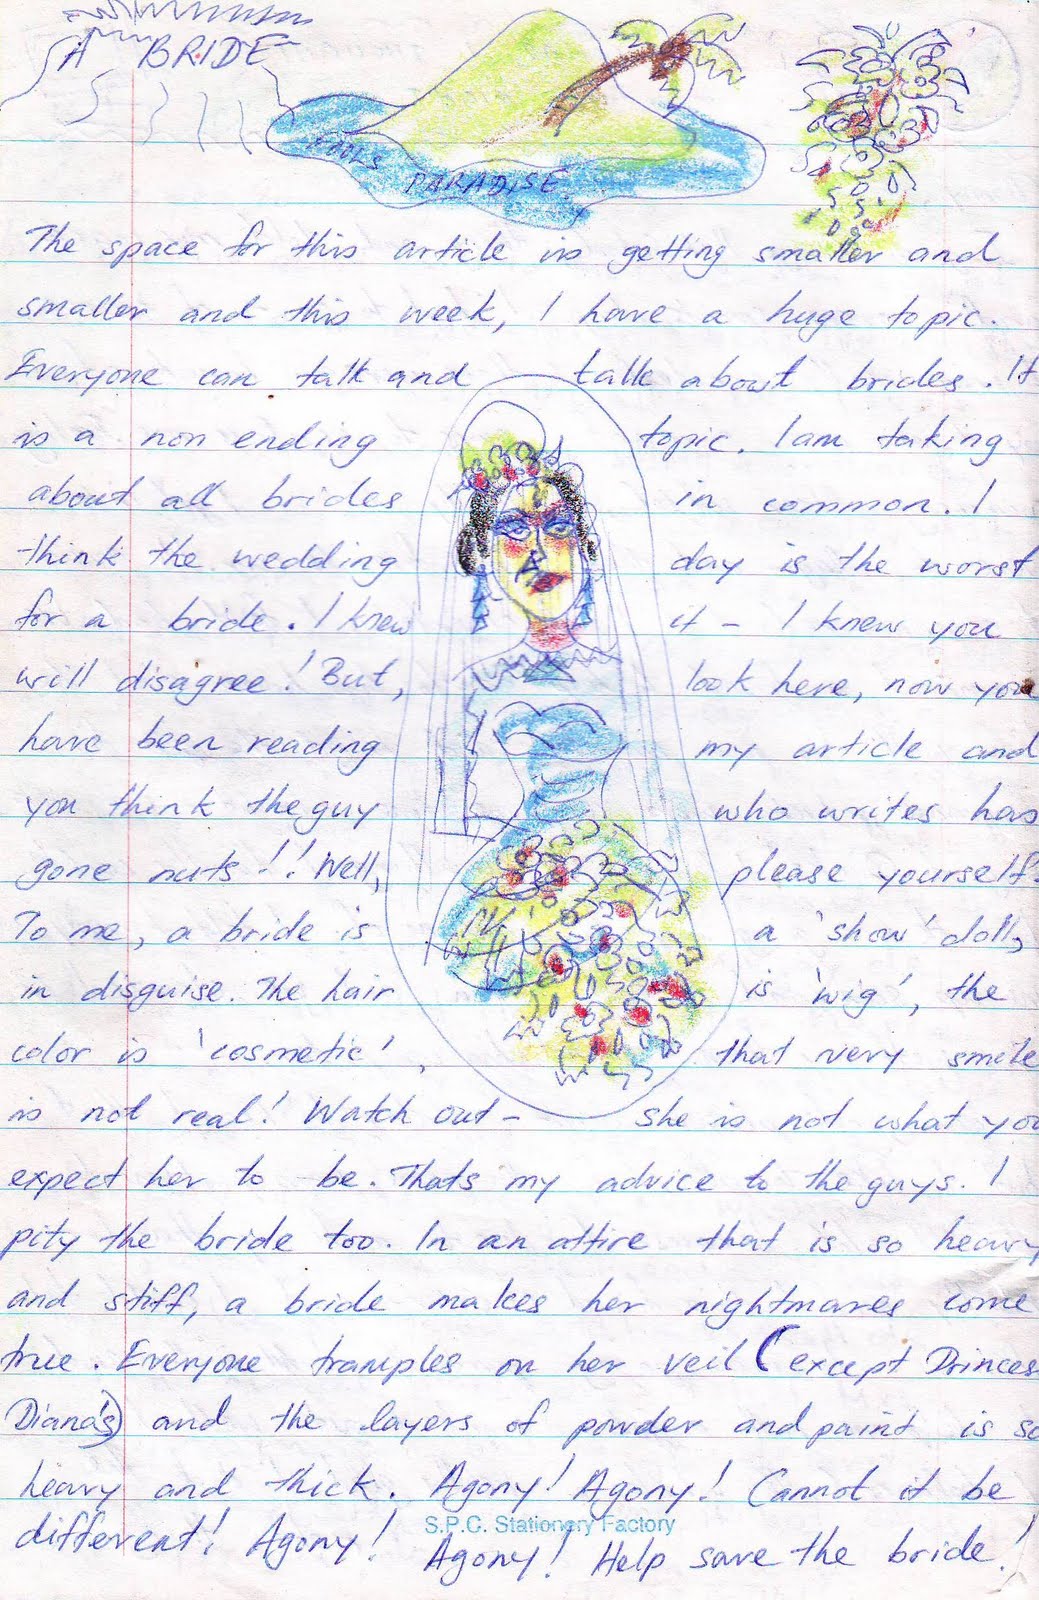 A BRIDE
FOOLS PARADISE
The space for this article is getting smaller and
smaller and this week, I have a huge topic.
Everyone can talk and talk about brides. It
is a non ending topic. I am taking
about all brides in common. I
think the wedding day is the worst
for a bride. I knew it - I knew you
will disagree! But, look here, now you
have been reading my article and
you think the guy who writes has
gone nuts!! Well, please yourself.
To me, a bride is a 'show' doll,
in disguise. The hair is 'wig', the
color is 'cosmetic', that very smile
is not real! Watch out - She is not what you
expect her to be. Thats my advice to the guys. I
pity the bride too. In an attire that is so heavy
and stiff, a bride makes her nightmares come
true. Everyone tramples on her veil (except Princes
Diana's) and the layers of powder and paint is so
heavy and thick. Agony! Agony! Cannot it be
S.P.C. Stationery Factory
different! Agony! Agony! Help save the bride!